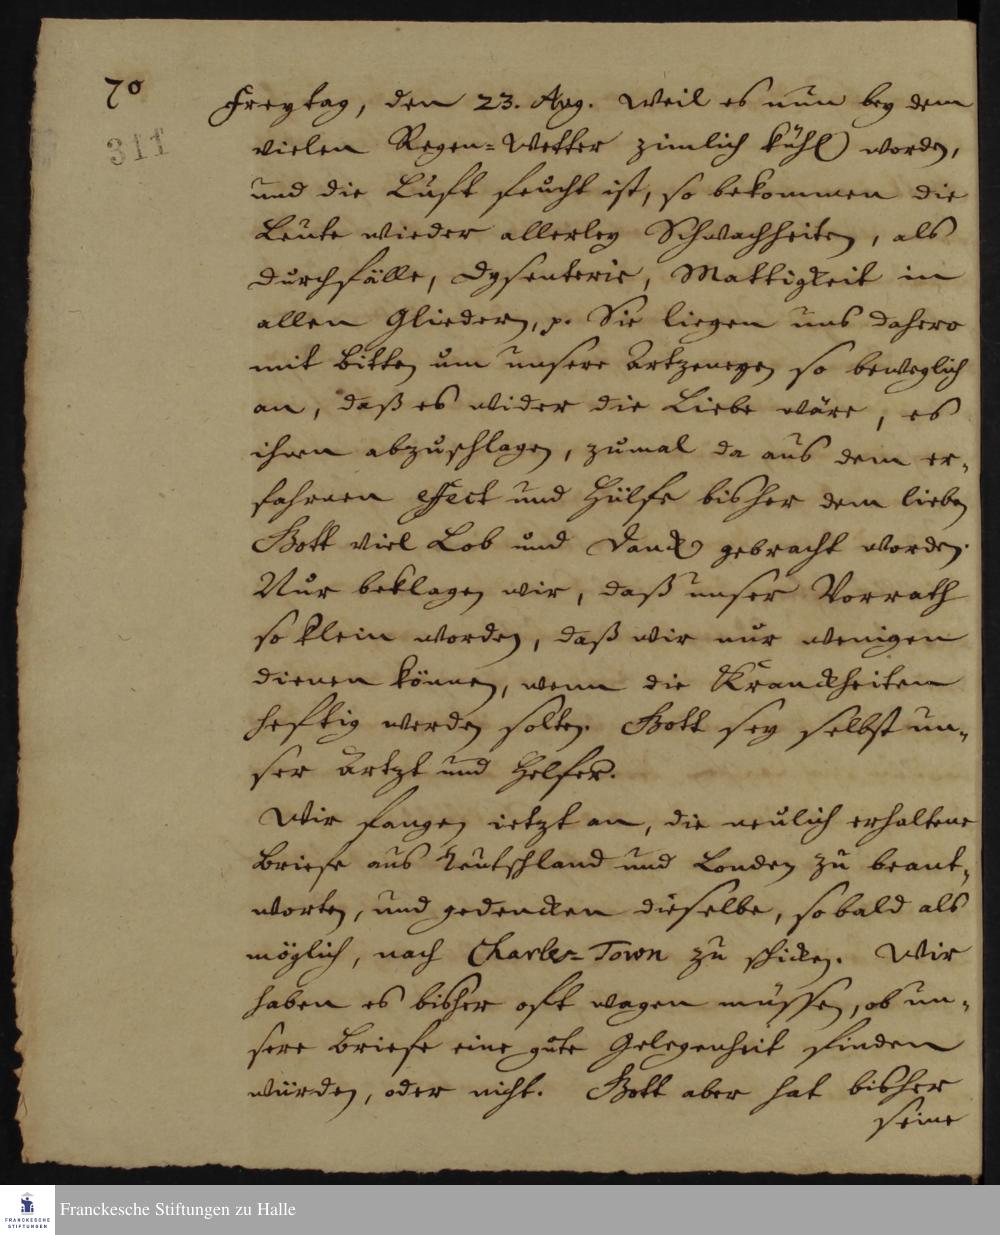 70
311
Freytag, den 23. Aug. Weil es nun bey dem
vielen Regen=Wetter zimlich kühl worden,
und die Luft feucht ist, so bekommen die
Leute wieder allerley Schwachheiten, als
durchfälle, dysenterie, Mattigkeit in
allen Gliedern, p. Sie liegen uns dahero
mit bitten um unsere Artzeneyen so beweglich
an, daß es wider die Liebe wäre, es
ihnen abzuschlagen, zumal da aus dem er-
fahrnen effect und Hülfe bisher dem lieben
Gott viel Lob und Danck gebracht worden.
Nur beklagen wir, daß unser Vorrath
so klein worden, daß wir nur wenigen
dienen können, wenn die Kranckheiten
heftig werden solten. Gott sey selbst un-
ser Artzt und Helfer.
Wir fangen ietzt an, die neulich erhaltene
Briefe aus Teutschland und London zu beant-
worten, und gedencken dieselbe, sobald als
möglich, nach Charles=Town zu schicken. Wir
haben es bisher oft wagen müssen, ob un-
sere Briefe eine gute Gelegenheit finden
würden, oder nicht. Gott aber hat bisher
seine
FRANCKESCHE
STIFTUNGEN
Franckesche Stiftungen zu Halle